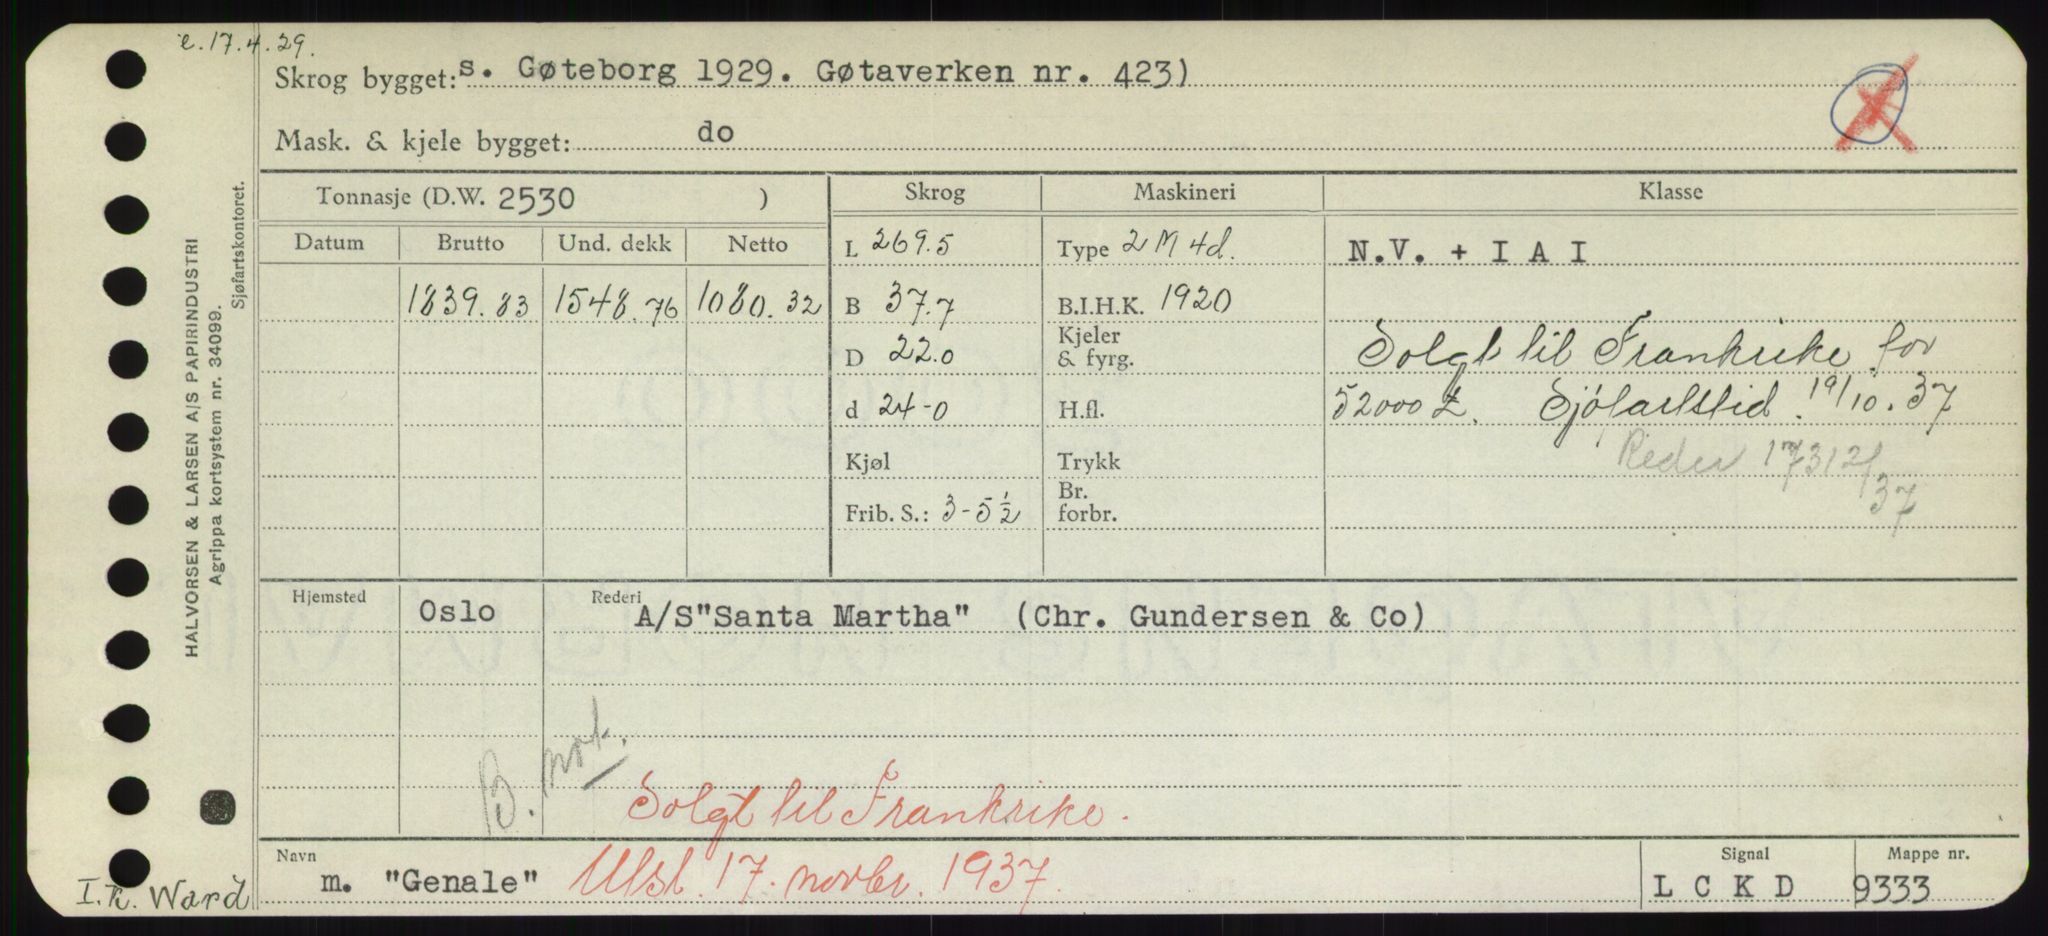 e. 17.4.29.
Skrog bygget: s. Gøteborg 1929. Gøtaverken nr. 423)
Mask. & kjele bygget: do
Tonnasje (D.W. 2530 )
Skrog
Maskineri
Klasse
Datum Brutto Und. dekk Netto
1839.83 1548.76 1080.32
L 269.5
B 37.7
D 22.0
d 24-0
Kjøl
Frib. S.: 3-5½
Type 2 M 4d.
B.I.H.K. 1920
Kjeler
& fyrg.
H.fl.
Trykk
Br.
forbr.
N.V. + I A I
Solgt til Frankrike for
52000 £. Sjöfartstid. 19/10.37
Reder 17312/37
Hjemsted Oslo Rederi A/S"Santa Martha" (Chr. Gundersen & Co)
B. not.
Solgt til Frankrike.
Navn m. "Genale" Utsl. 17. novbr. 1937.
Signal L C K D
Mappe nr. 9333
HALVORSEN & LARSEN A/S PAPIRINDUSTRI
Agrippa kortsystem nr. 34099.
Sjøfartskontoret.
Ward